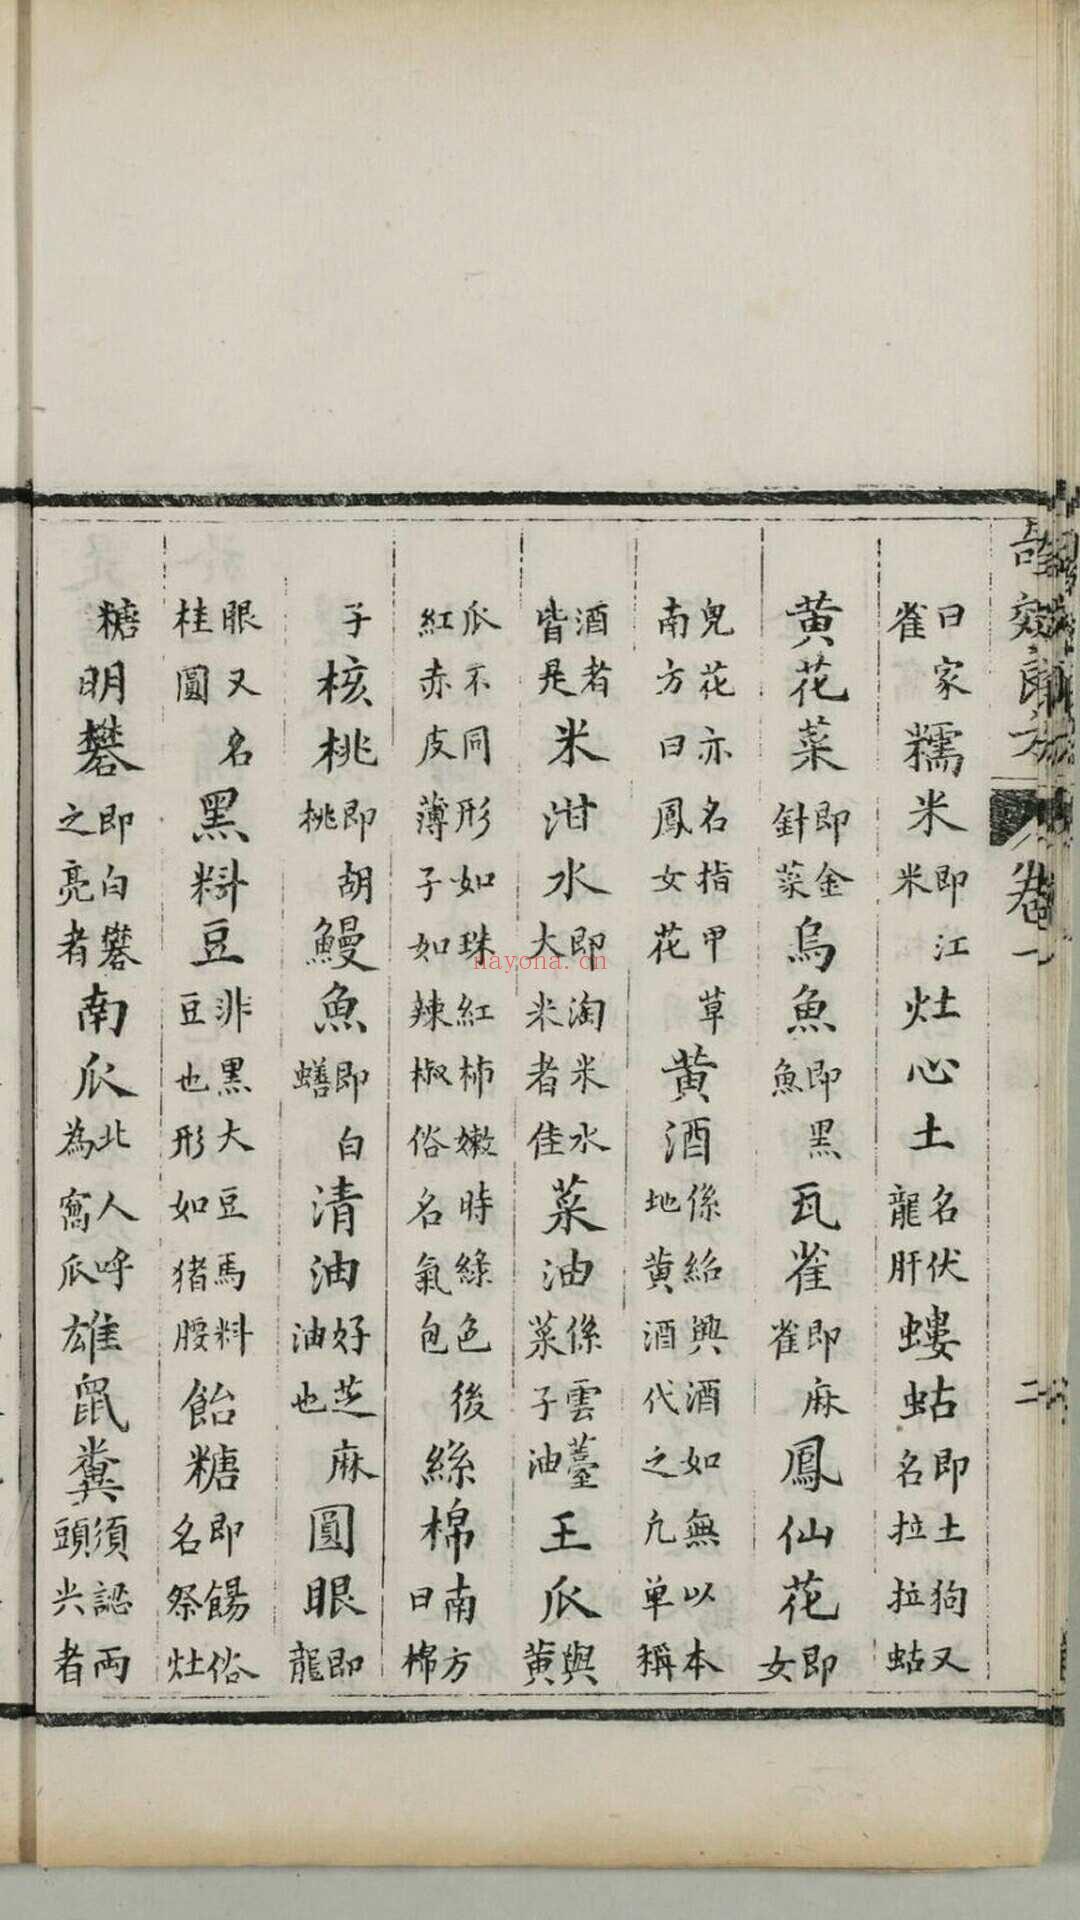 卷一
二
曰家雀糯米即江米灶心土名伏龍肝螻蛄即土狗又名拉拉蛄
黄花菜即金針菜烏魚即黑魚瓦雀即麻雀鳳仙花即女
兒花亦名指甲草南方曰鳳女花黄酒係紹興酒如無以本地黄酒代之凢单稱
酒者皆是米泔水即淘米水大米者佳菜油係雲薹菜子油王瓜與黄
瓜不同形如珠紅柿嫩時綠色後紅赤皮薄子如辣椒俗名氣包絲棉南方曰棉
子核桃即胡桃鰻魚即白蟮清油好芝麻油也圓眼即龍
眼又名桂圓黑料豆非黑大豆馬料豆也形如猪腰飴糖即餳俗名祭灶
糖明礬即白礬之亮者南瓜北人呼為窩瓜雄鼠糞須認兩頭尖者
nayona.cn